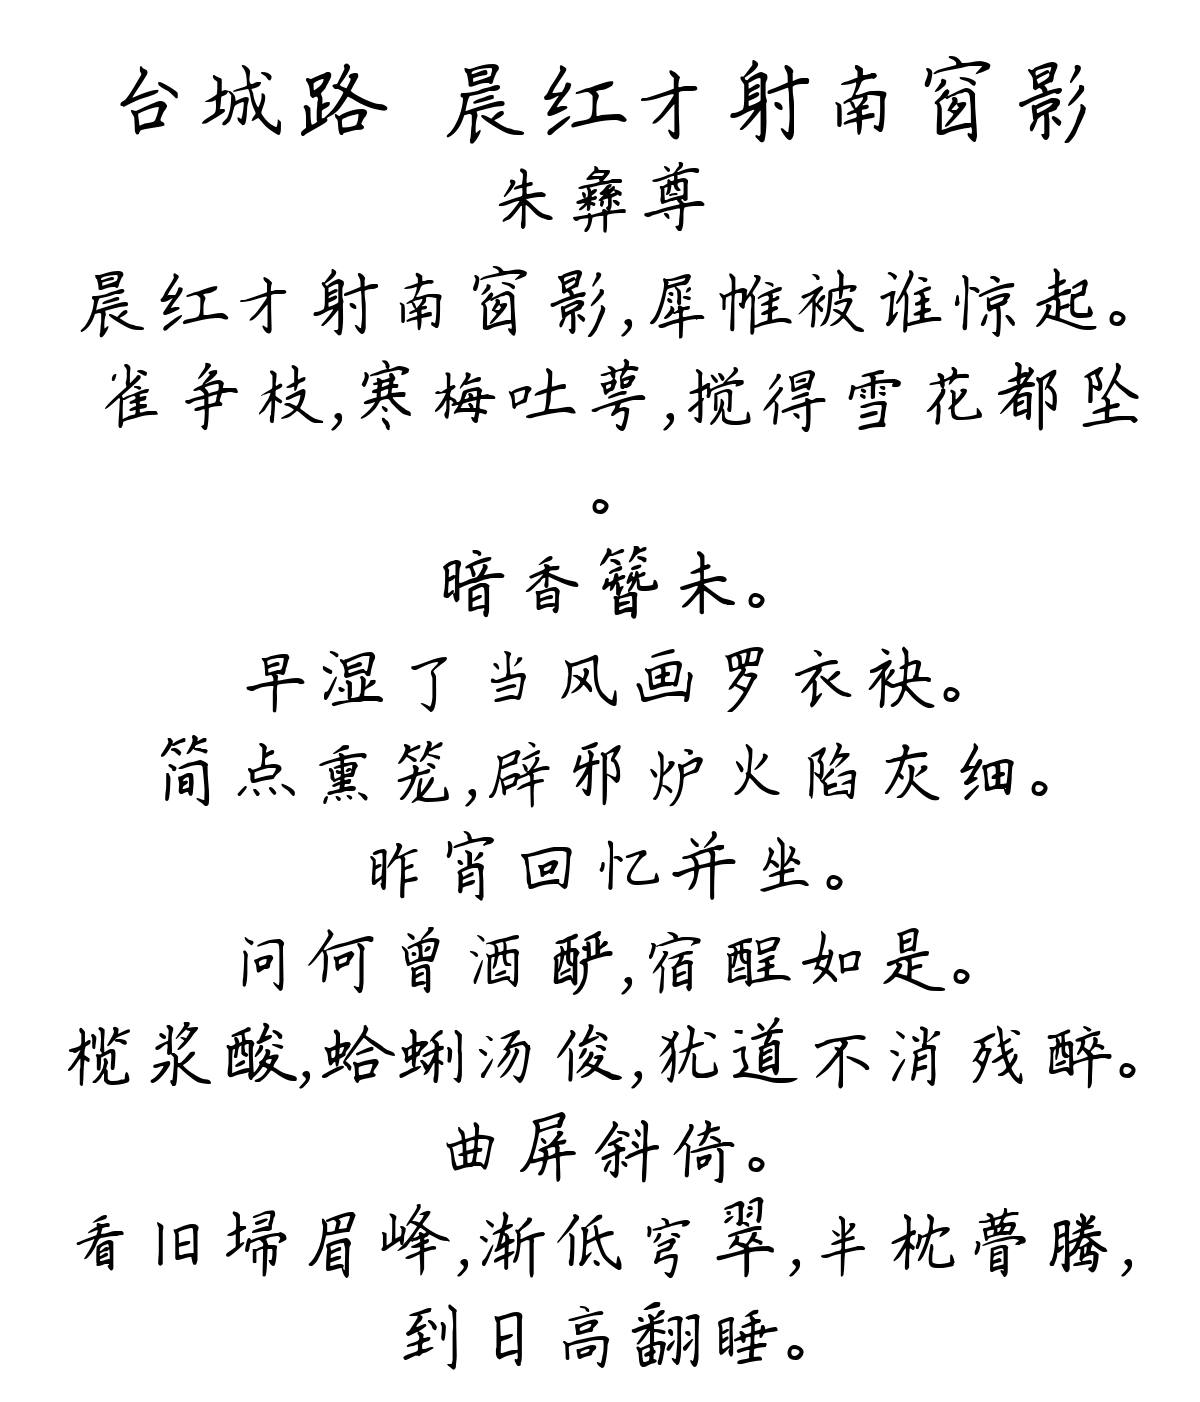 台城路 晨红才射南窗影
朱彝尊
晨红才射南窗影,犀帷被谁惊起。
雀争枝,寒梅吐萼,搅得雪花都坠
。
暗香簪未。
早湿了当风画罗衣袂。
简点熏笼,辟邪炉火陷灰细。
昨宵回忆并坐。
问何曾酒酽,宿酲如是。
榄浆酸,蛤蜊汤俊,犹道不消残醉。
曲屏斜倚。
看旧埽眉峰,渐低穹翠,半枕瞢腾,
到日高翻睡。